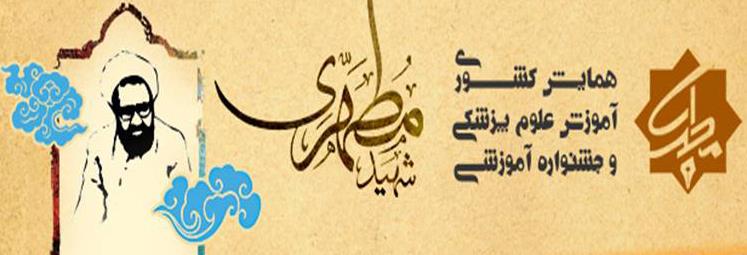 همایش کشوری
آموزش علوم پزشکی
و جشنواره آموزشی
شهید مطهری